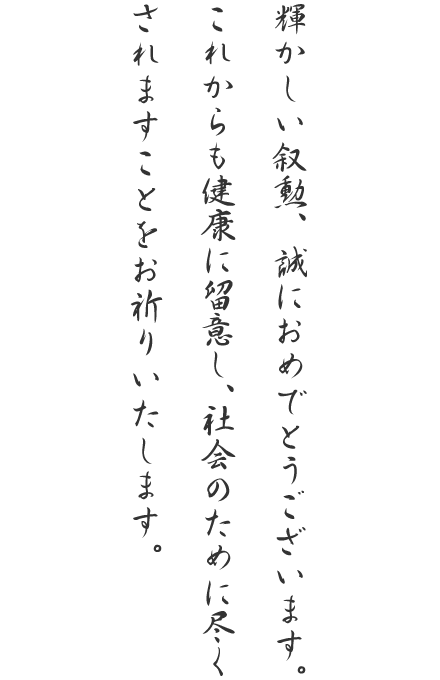 輝かしい叙勲、誠におめでとうございます。
これからも健康に留意し、社会のために尽く
されますことをお祈りいたします。